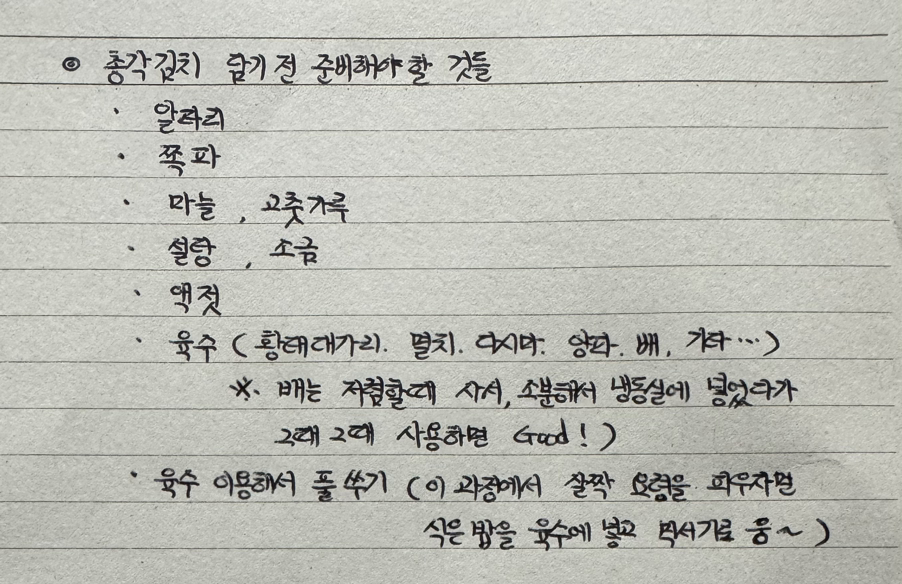 ◎ 총각김치 담기 전 준비해야 할 것들
· 알타리
· 쪽파
· 마늘, 고춧가루
· 설탕, 소금
· 액젓
· 육수 (황태대가리. 멸치. 다시마. 양파. 배, 기타…)
※. 배는 저렴할때 사서, 소분해서 냉동실에 넣었다가
그때 그때 사용하면 Good!)
· 육수 이용해서 풀 쑤기 (이 과정에서 살짝 요령을 피우자면
식은 밥을 육수에 넣고 믹서기로 웅~)